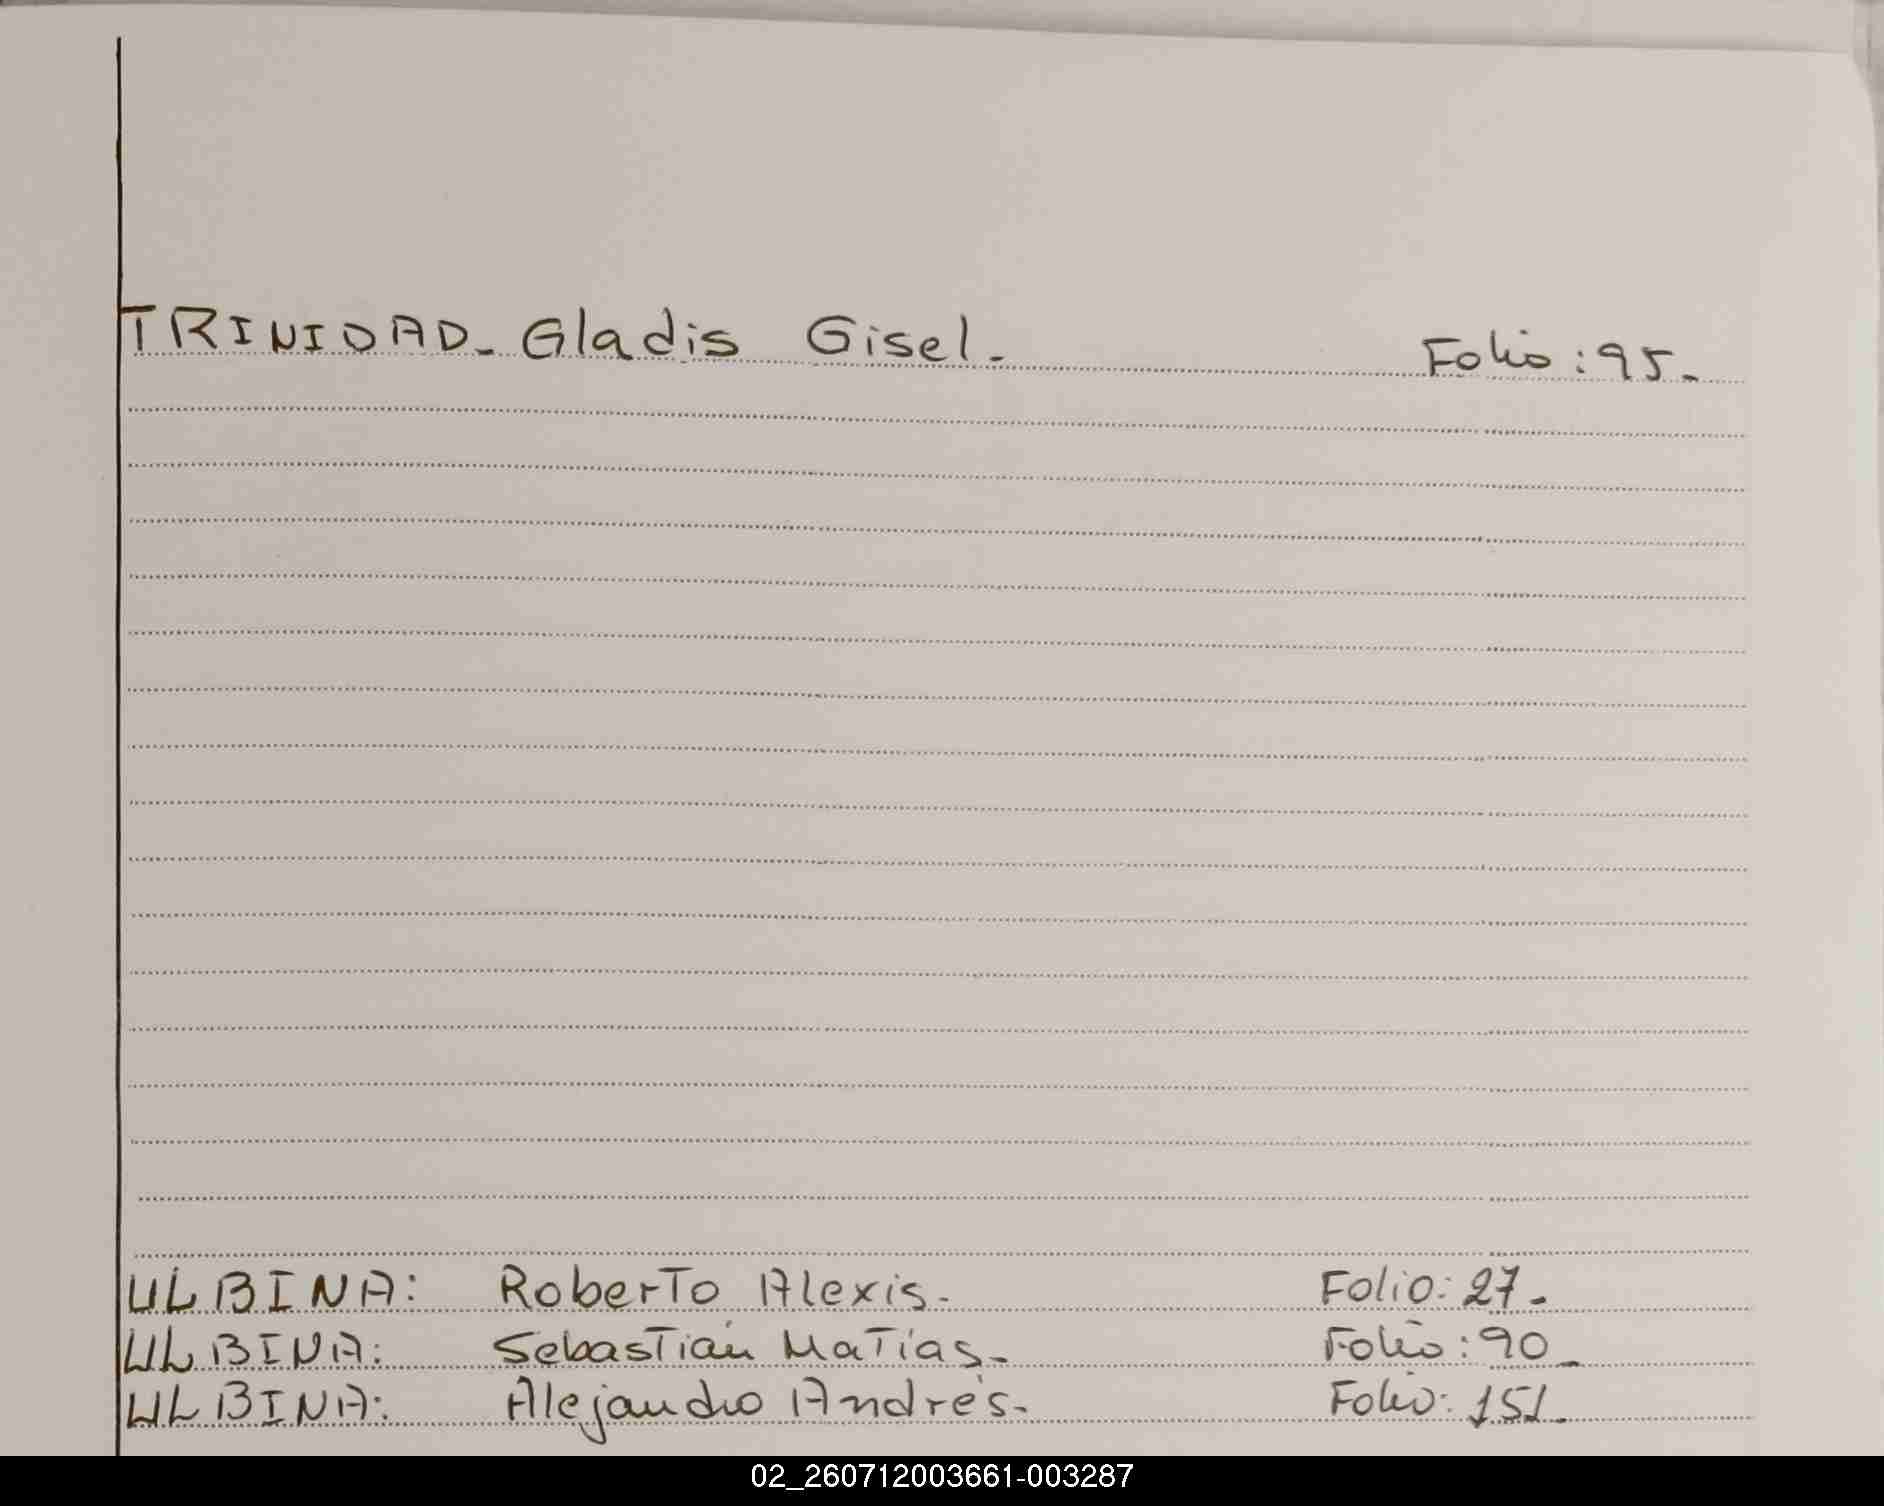 TRINIDAD_ Gladis Gisel. Folio: 95_
ULBINA: Roberto Alexis. Folio: 27.
ULBINA: Sebastián Matías. Folio: 90_
ULBINA: Alejandro Andrés. Folio: 151.
02_260712003661-003287